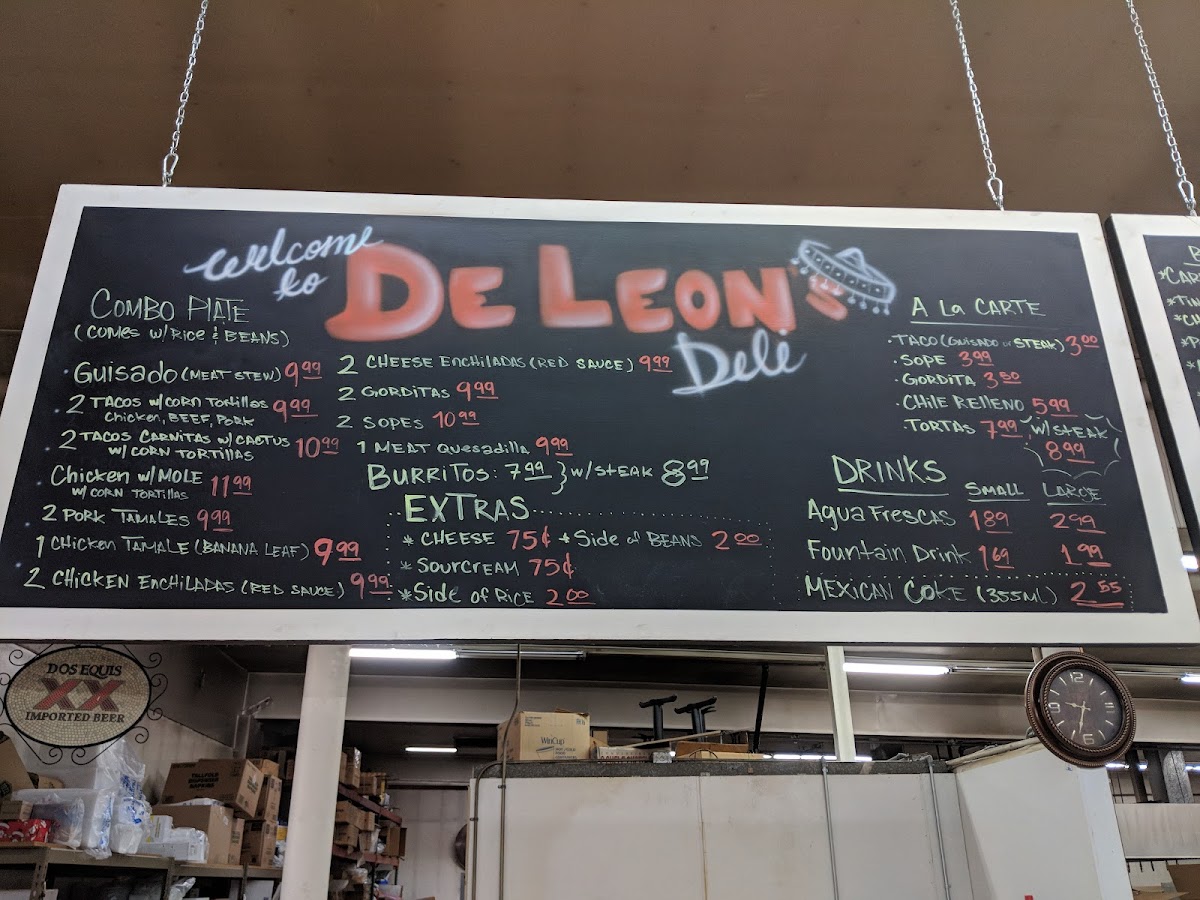 welcome
to
DE LEON'S
Deli
COMBO PLATE
(COMES W/RICE & BEANS)
· GUISADO (MEAT STEW) 9.99
· 2 TACOS W/CORN TORTILLAS 9.99
Chicken, BEEF, PORK
· 2 TACOS CARNITAS W/ CACTUS 10.99
W/ CORN TORTILLAS
· Chicken W/ MOLE 11.99
W/ CORN TORTILLAS
· 2 PORK TAMALES 9.99
· 1 Chicken TAMALE (BANANA LEAF) 9.99
· 2 CHICKEN ENCHILADAS (RED SAUCE) 9.99
2 CHEESE ENCHILADAS (RED SAUCE) 9.99
2 GORDITAS 9.99
2 SOPES 10.99
1 MEAT Quesadilla 9.99
BURRITOS: 7.99 } W/STEAK 8.99
EXTRAS
* CHEESE 75¢ * Side of BEANS 2.00
* SOURCREAM 75¢
* Side OF RICE 2.00
A La CARTE
· TACO (GUISADO or STEAK) 3.00
· SOPE 3.99
· GORDITA 3.50
· CHILE RELLENO 5.99
· TORTAS 7.99 W/STEAK
8.99
DRINKS SMALL LARGE
Agua FRESCAS 1.89 2.99
Fountain Drink 1.69 1.99
MEXICAN COKE (355ML) 2.55
DOS EQUIS
XX
IMPORTED BEER
WinCup
12
3
6
9